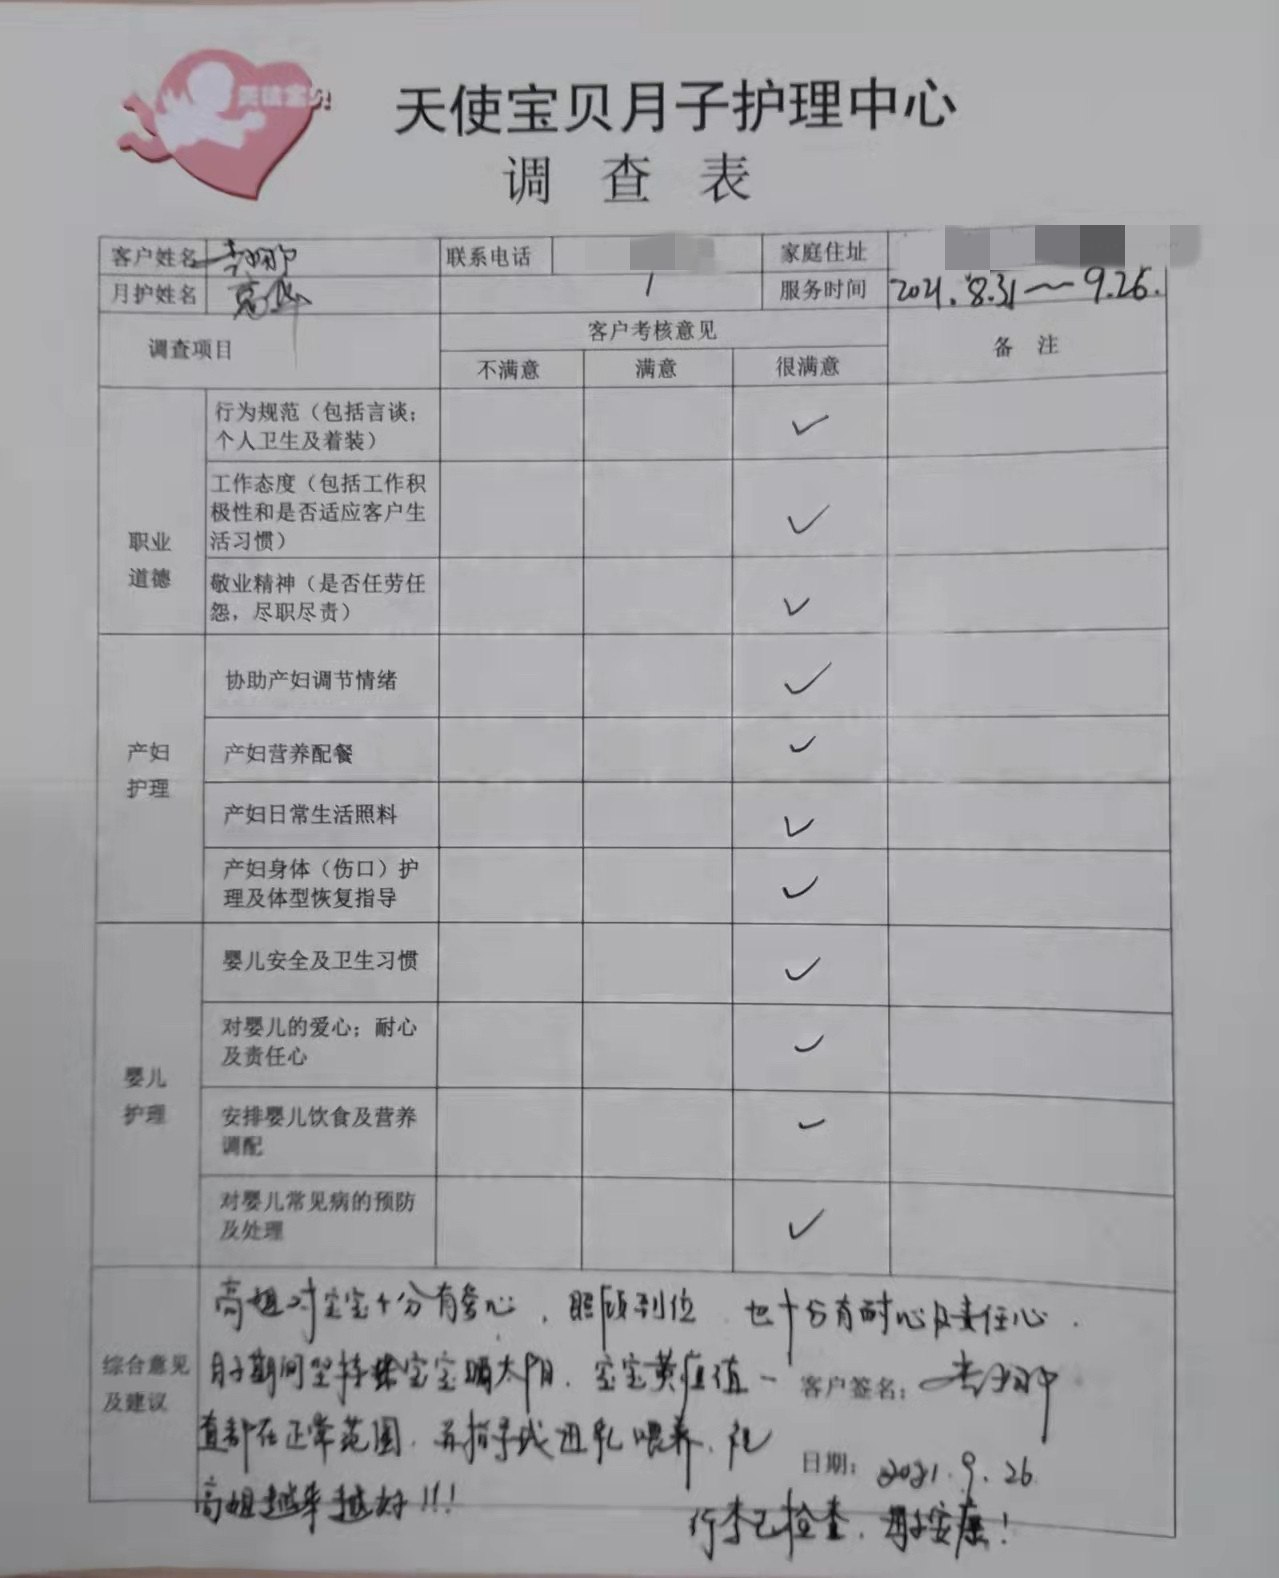 天使宝贝
天使宝贝月子护理中心
调 查 表
客户姓名
联系电话
家庭住址
月护姓名
/
服务时间 2021.8.31~9.26.
调查项目
客户考核意见
备 注
不满意
满意
很满意
职业
道德
行为规范（包括言谈；
个人卫生及着装）
✓
工作态度（包括工作积
极性和是否适应客户生
活习惯）
✓
敬业精神（是否任劳任
怨，尽职尽责）
✓
产妇
护理
协助产妇调节情绪
✓
产妇营养配餐
✓
产妇日常生活照料
✓
产妇身体（伤口）护
理及体型恢复指导
✓
婴儿
护理
婴儿安全及卫生习惯
✓
对婴儿的爱心；耐心
及责任心
✓
安排婴儿饮食及营养
调配
✓
对婴儿常见病的预防
及处理
✓
综合意见
及建议
高姐对宝宝十分有爱心，照顾到位，也十分有耐心及责任心．
月子期间坚持给宝宝晒太阳．宝宝黄疸值一
直都在正常范围．并指导我追乳喂养．祝
高姐越来越好！！！
客户签名：
日期：2021.9.26
行李已检查，母子安康！